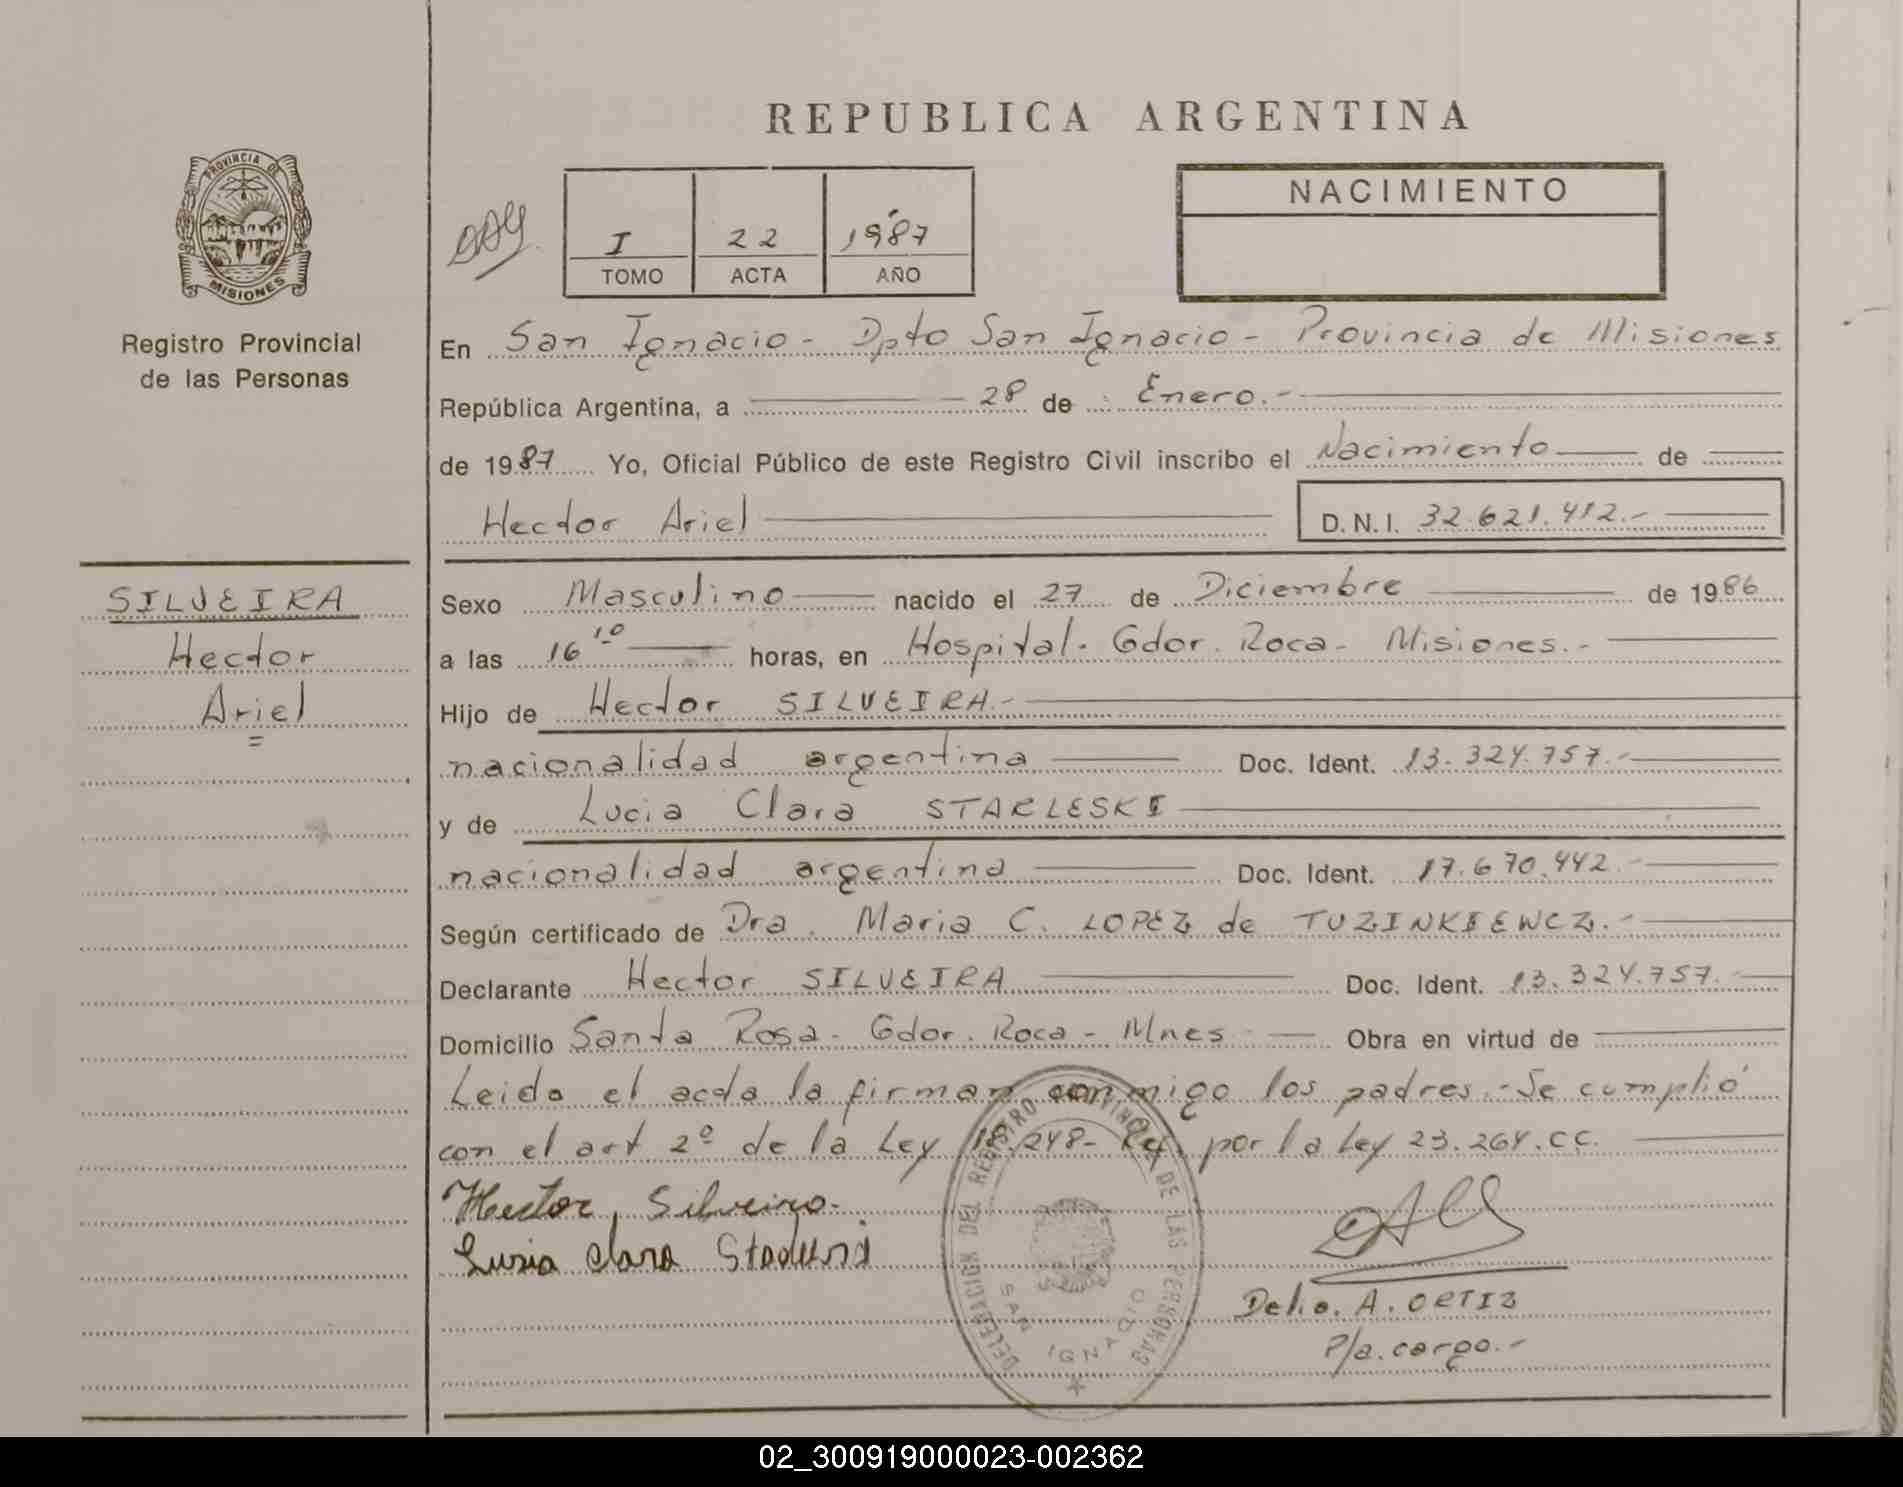 REPUBLICA ARGENTINA
PROVINCIA DE
MISIONES
Registro Provincial
de las Personas
I 22 1987
TOMO ACTA AÑO
NACIMIENTO
En San Ignacio - Dpto San Ignacio - Provincia de Misiones
República Argentina, a 28 de Enero.-
de 1987 Yo, Oficial Público de este Registro Civil inscribo el Nacimiento de
Hector Ariel D.N.I. 32.621.412.-
SILVEIRA
Hector
Ariel
Sexo Masculino nacido el 27 de Diciembre de 1986
a las 16 10 horas, en Hospital. Gdor. Roca - Misiones.-
Hijo de Hector SILVEIRA.-
nacionalidad argentina Doc. Ident. 13.324.757.-
y de Lucia Clara STARLESKI
nacionalidad argentina Doc. Ident. 17.670.442.-
Según certificado de Dra. Maria C. LOPEZ de TUZINKIEWCZ.-
Declarante Hector SILVEIRA Doc. Ident. 13.324.757.-
Domicilio Santa Rosa - Gdor. Roca - Mnes Obra en virtud de
Leida el acta la firman conmigo los padres.- Se cumplió
con el art 2º de la Ley 18.248- por la Ley 23.264.CC.
Hector, Silveira.
Clara
DELEGACION DEL REGISTRO PROVINCIAL DE LAS PERSONAS
SAN IGNACIO
Delio. A. ORTIZ
P/a. cargo.-
02_300919000023-002362